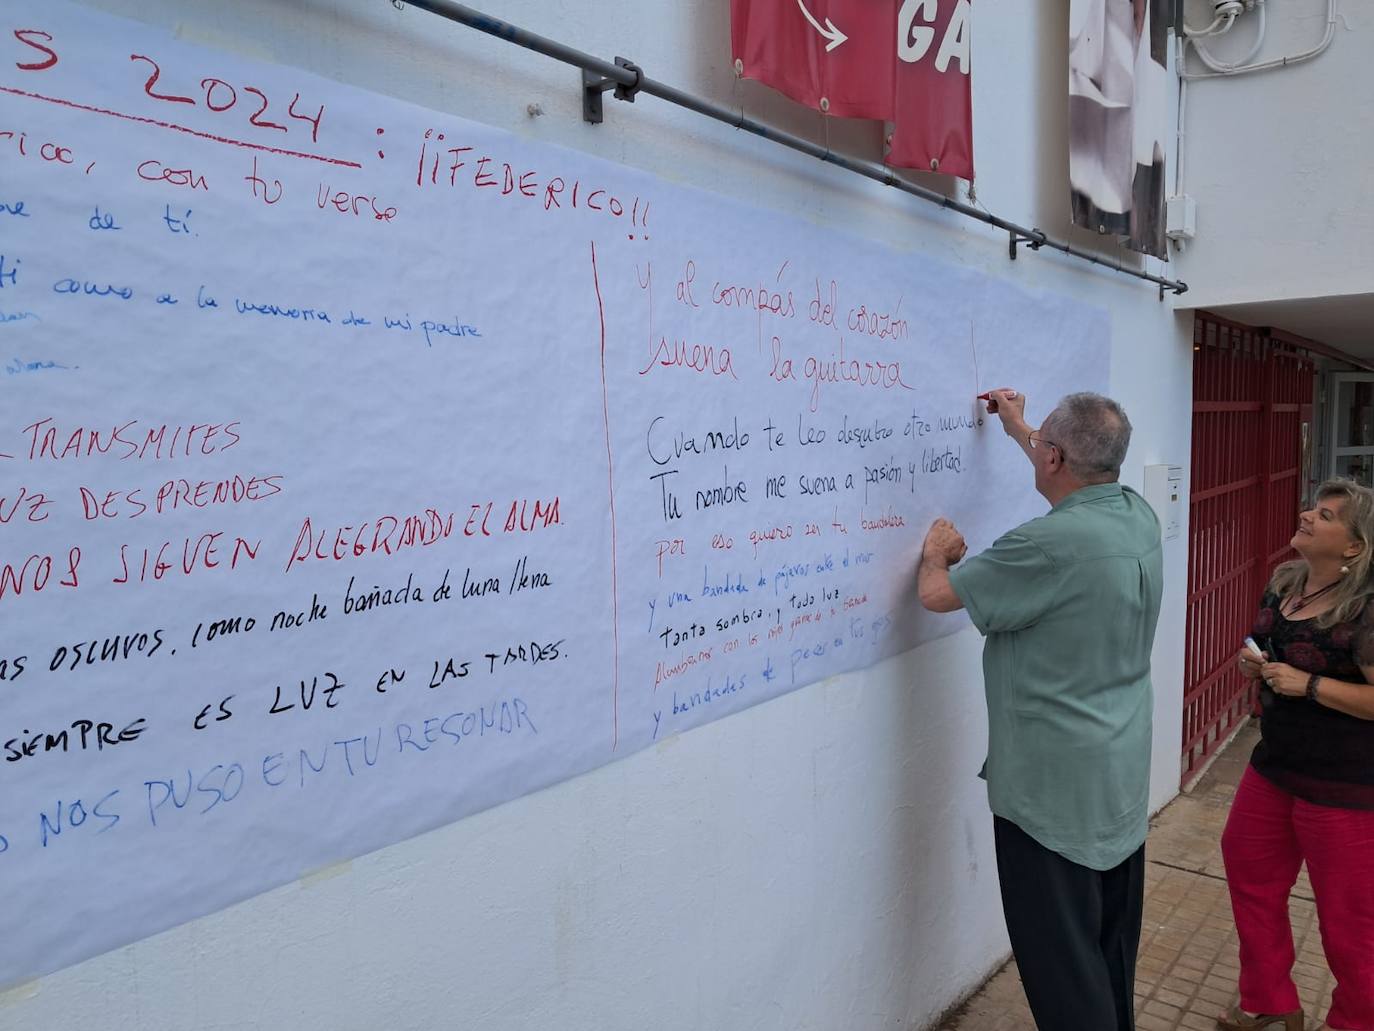 S 2024 : ¡¡FEDERICO!!
con tu verso
de ti.
ti como a la memoria de mi padre
TRANSMITES
LUZ DESPRENDES
NOS SIGUEN ALEGRANDO EL ALMA.
OSCUROS, como noche bañada de luna llena
SIEMPRE ES LUZ EN LAS TARDES.
NOS PUSO EN TU RESONAR
Y al compás del corazón
suena la guitarra
Cuando te leo descubro otro mundo
Tu nombre me suena a pasión y libertad.
por eso quiero ser tu bandolera
y una bandada de pájaros ente el mar
tanta sombra, y toda luz
y bandadas de peces en tus ojos
GA